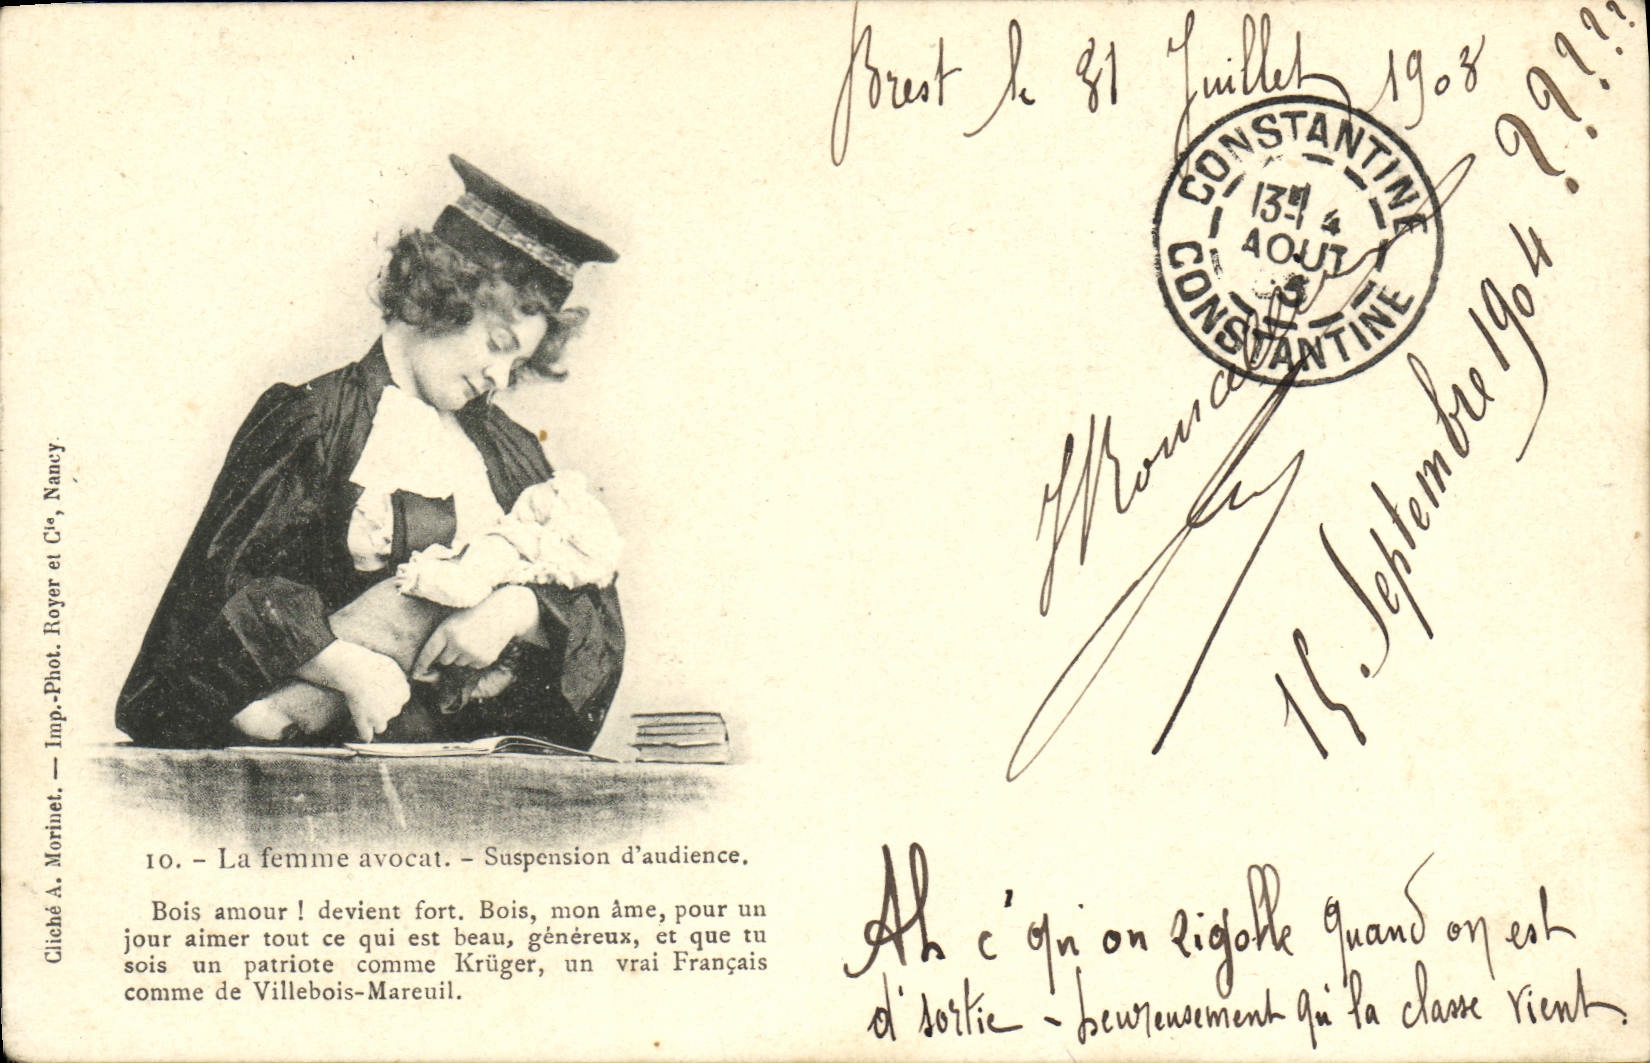 Brest le 31 Juillet 1903
CONSTANTINE
13H 4
AOUT
CONSTANTINE
15. Septembre 1904 ? ? ? ? ?
Cliché A. Morinet. — Imp.-Phot. Royer et Cie, Nancy.
10. – La femme avocat. – Suspension d'audience.
Bois amour ! devient fort. Bois, mon âme, pour un
jour aimer tout ce qui est beau, généreux, et que tu
sois un patriote comme Krüger, un vrai Français
comme de Villebois-Mareuil.
Ah c'qu'on rigolle quand on est
d'sortie - heureusement qu'la classe vient.